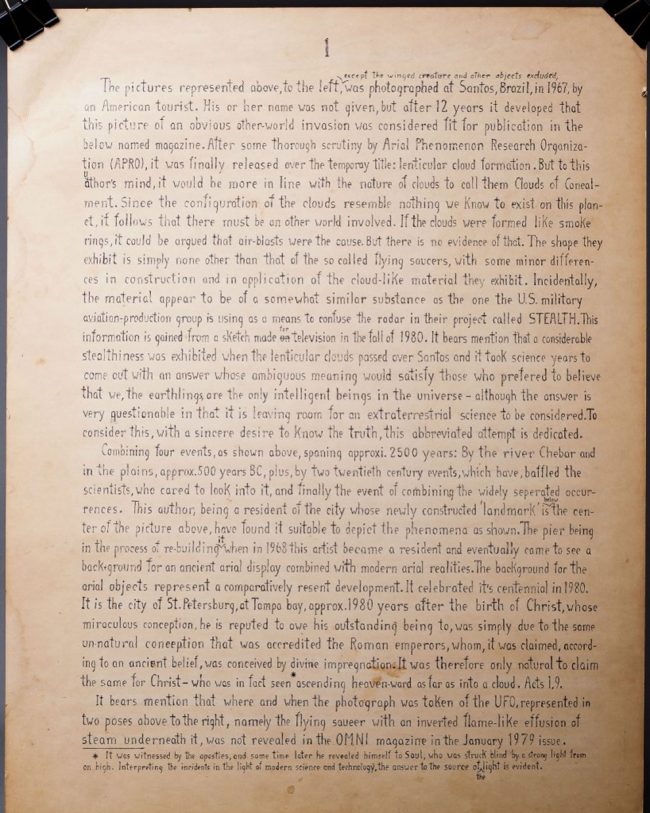 1
except the winged creature and other objects excluded,
The pictures represented above, to the left, was photographed at Santos, Brazil, in 1967, by
an American tourist. His or her name was not given, but after 12 years it developed that
this picture of an obvious other-world invasion was considered fit for publication in the
below named magazine. After some thorough scrutiny by Arial Phenomenon Research Organiza-
tion (APRO), it was finally released over the temporay title: lenticular cloud formation. But to this
u
athor's mind, it would be more in line with the nature of clouds to call them Clouds of Conceal-
ment. Since the configuration of the clouds resemble nothing we know to exist on this plan-
et, it follows that there must be an other world involved. If the clouds were formed like smoke
rings, it could be argued that air-blasts were the cause. But there is no evidence of that. The shape they
exhibit is simply none other than that of the so called flying saucers, with some minor differen-
ces in construction and in application of the cloud-like material they exhibit. Incidentally,
the material appear to be of a somewhat similar substance as the one the U.S. military
aviation-production group is using as a means to confuse the radar in their project called STEALTH. This
for
information is gained from a sketch made on television in the fall of 1980. It bears mention that a considerable
stealthiness was exhibited when the lenticular clouds passed over Santos and it took science years to
come out with an answer whose ambiguous meaning would satisfy those who prefered to believe
that we, the earthlings, are the only intelligent beings in the universe - although the answer is
very questionable in that it is leaving room for an extraterrestrial science to be considered. To
consider this, with a sincere desire to know the truth, this abbreviated attempt is dedicated.
Combining four events, as shown above, spaning approxi. 2500 years: By the river Chebar and
in the plains, approx. 500 years BC, plus, by two twentieth century events, which have, baffled the
scientists, who cared to look into it, and finally the event of combining the widely seperated occur-
below
rences. This author, being a resident of the city whose newly constructed 'landmark' is the cen-
ter of the picture above, have found it suitable to depict the phenomena as shown. The pier being
it
in the process of re-building when in 1968 this artist became a resident and eventually came to see a
back-ground for an ancient arial display combined with modern arial realities. The background for the
arial objects represent a comparatively resent development. It celebrated it's centennial in 1980.
It is the city of St. Petersburg, at Tampa bay, approx. 1980 years after the birth of Christ, whose
miraculous conception, he is reputed to owe his outstanding being to, was simply due to the same
un-natural conception that was accredited the Roman emperors, whom, it was claimed, accord-
ing to an ancient belief, was conceived by divine impregnation. It was therefore only natural to claim
the same for Christ - who was in fact seen * ascending heaven-ward as far as into a cloud. Acts 1,9.
It bears mention that where and when the photograph was taken of the UFO, represented in
two poses above to the right, namely the flying saucer with an inverted flame-like effusion of
steam underneath it, was not revealed in the OMNI magazine in the January 1979 issue.
* It was witnessed by the apostles, and some time later he revealed himself to Saul, who was struck blind by a strong light from
on high. Interpreting the incidents in the light of modern science and technology, the answer to the source of light is evident.
the